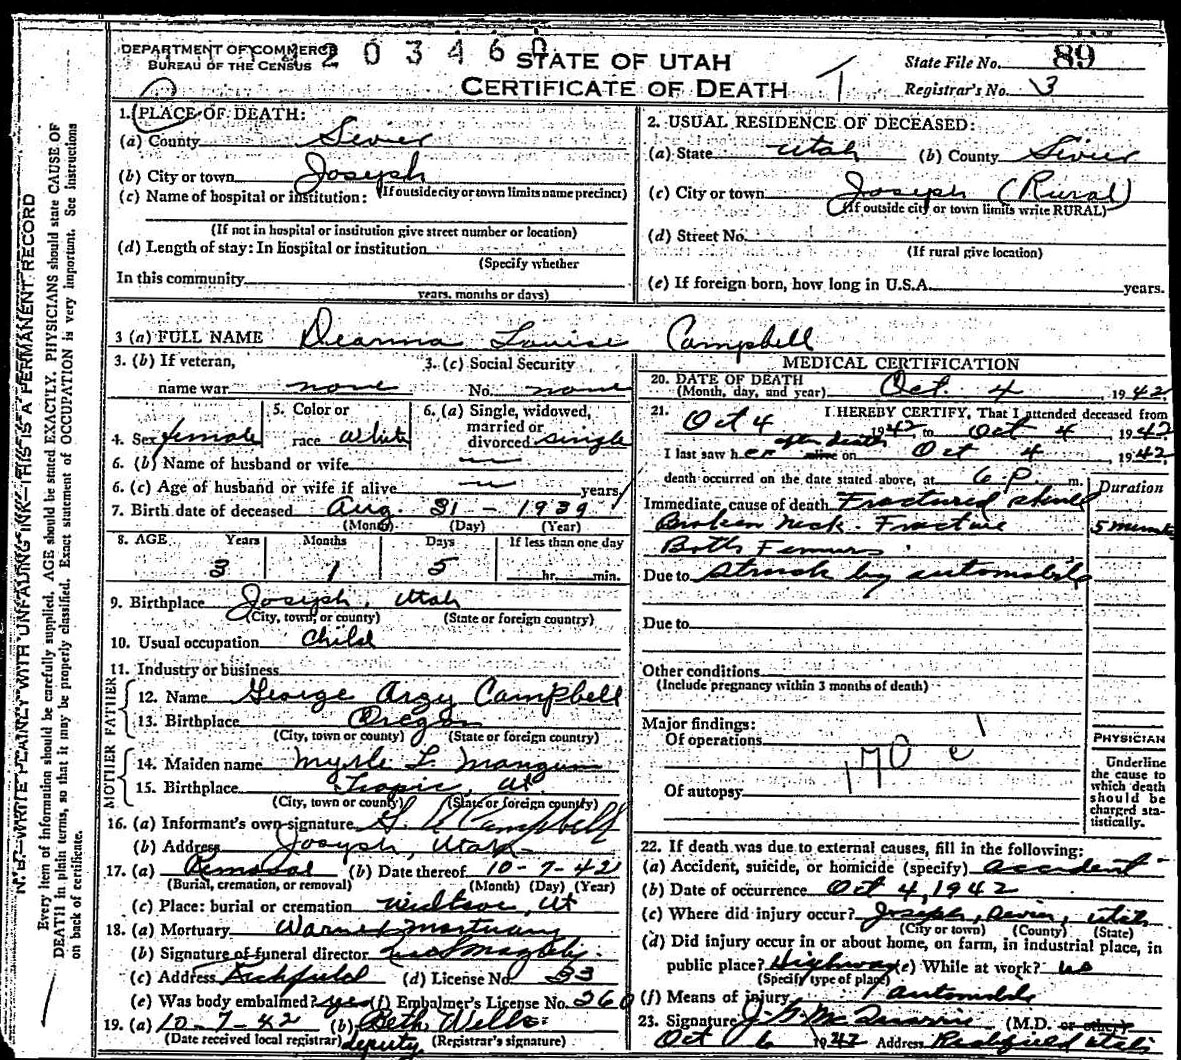 DEPARTMENT OF COMMERCE
BUREAU OF THE CENSUS
203460
STATE OF UTAH
CERTIFICATE OF DEATH
State File No. 89
Registrar's No. 3
1. PLACE OF DEATH:
(a) County Sevier
(b) City or town Joseph
(If outside city or town limits name precinct)
(c) Name of hospital or institution:
(If not in hospital or institution give street number or location)
(d) Length of stay: In hospital or institution
(Specify whether
In this community
years, months or days)
2. USUAL RESIDENCE OF DECEASED:
(a) State Utah (b) County Sevier
(c) City or town Joseph (Rural)
(If outside city or town limits write RURAL)
(d) Street No.
(If rural give location)
(e) If foreign born, how long in U.S.A. years.
3 (a) FULL NAME Deanna Louise Campbell
3. (b) If veteran,
name war none
3. (c) Social Security
No. none
4. Sex female
5. Color or
race White
6. (a) Single, widowed,
married or
divorced single
6. (b) Name of husband or wife
6. (c) Age of husband or wife if alive years
7. Birth date of deceased Aug 31 - 1939
(Month) (Day) (Year)
8. AGE Years Months Days If less than one day
3 1 5 hr. min.
9. Birthplace Joseph, Utah
(City, town, or county) (State or foreign country)
10. Usual occupation Child
11. Industry or business
FATHER
12. Name George Argy Campbell
13. Birthplace Oregon
(City, town or county) (State or foreign country)
MOTHER
14. Maiden name Myrle L. Mangum
15. Birthplace Tropic, Ut.
(City, town or county) (State or foreign country)
16. (a) Informant's own signature Campbell
(b) Address Joseph, Utah
17. (a) Removal (b) Date thereof 10-7-42
(Burial, cremation, or removal) (Month) (Day) (Year)
(c) Place: burial or cremation Widtsoe, Ut
18. (a) Mortuary Mortuary
(b) Signature of funeral director
(c) Address Richfield (d) License No. 33
(e) Was body embalmed? yes (f) Embalmer's License No. 360
19. (a) 10-7-42 (b) Beth Wells
(Date received local registrar) deputy (Registrar's signature)
MEDICAL CERTIFICATION
20. DATE OF DEATH
(Month, day, and year) Oct. 4 1942
21. I HEREBY CERTIFY, That I attended deceased from
Oct 4 1942 to Oct 4 1942
I last saw her after death alive on Oct 4 1942
death occurred on the date stated above, at 6 P m.
Duration
Immediate cause of death Fractured skull
Broken neck - Fracture 5 minutes
Both Femurs
Due to struck by automobile
Due to
Other conditions
(Include pregnancy within 3 months of death)
Major findings:
Of operations
170 c
Of autopsy
PHYSICIAN
Underline
the cause to
which death
should be
charged sta-
tistically.
22. If death was due to external causes, fill in the following:
(a) Accident, suicide, or homicide (specify) accident
(b) Date of occurrence Oct 4, 1942
(c) Where did injury occur? Joseph, Sevier, Utah
(City or town) (County) (State)
(d) Did injury occur in or about home, on farm, in industrial place, in
public place? Highway (e) While at work? no
(Specify type of place)
(f) Means of injury automobile
23. Signature (M.D. or other)
Oct 6 1942 Address Richfield Utah
N. B.—WRITE PLAINLY WITH UNFADING INK—THIS IS A PERMANENT RECORD
Every item of information should be carefully supplied. AGE should be stated EXACTLY. PHYSICIANS should state CAUSE OF
DEATH in plain terms, so that it may be properly classified. Exact statement of OCCUPATION is very important. See instructions
on back of certificate.